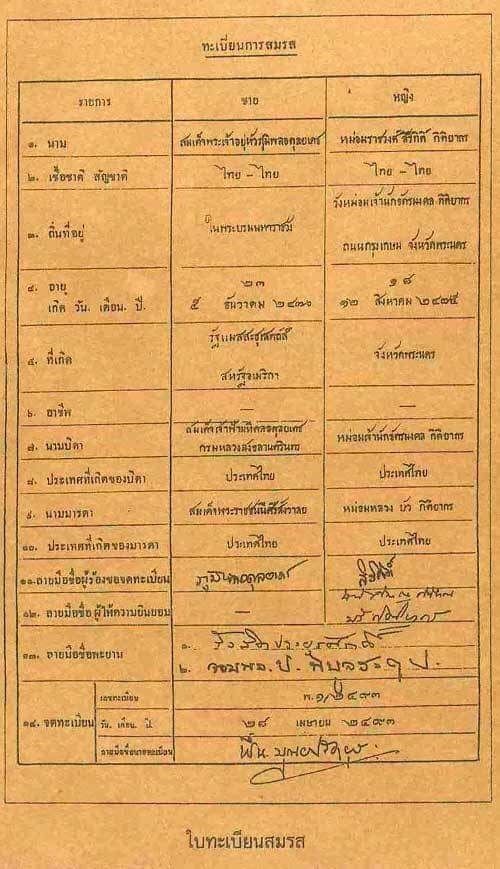 ทะเบียนการสมรส
รายการ ชาย หญิง
๑. นาม สมเด็จพระเจ้าอยู่หัวภูมิพลอดุลยเดช หม่อมราชวงศ์ สิริกิติ์ กิติยากร
๒. เชื้อชาติ สัญชาติ ไทย – ไทย ไทย – ไทย
๓. ถิ่นที่อยู่ ในพระบรมมหาราชวัง วังหม่อมเจ้านักขัตรมงคล กิติยากร
ถนนกรุงเกษม จังหวัดพระนคร
๔. อายุ ๒๓ ๑๘
เกิด วัน. เดือน. ปี. ๕ ธันวาคม ๒๔๗๐ ๑๒ สิงหาคม ๒๔๗๕
๕. ที่เกิด รัฐแมสสะชูเสตส์ส์ จังหวัดพระนคร
สหรัฐอเมริกา
๖. อาชีพ — —
๗. นามบิดา สมเด็จเจ้าฟ้ามหิดลอดุลยเดช หม่อมเจ้านักขัตรมงคล กิติยากร
กรมหลวงสงขลานครินทร์
๘. ประเทศที่เกิดของบิดา ประเทศไทย ประเทศไทย
๙. นามมารดา สมเด็จพระราชชนนีศรีสังวาลย์ หม่อมหลวง บัว กิติยากร
๑๐. ประเทศที่เกิดของมารดา ประเทศไทย ประเทศไทย
๑๑. ลายมือชื่อผู้ร้องขอจดทะเบียน ภูมิพลอดุลยเดช สิริกิติ์
๑๒. ลายมือชื่อ ผู้ให้ความยินยอม —
๑๓. ลายมือชื่อพยาน ๑. รังสิตประยูรศักดิ์
๒. จอมพล ป. พิบูลสงคราม
๑๔. จดทะเบียน เลขทะเบียน พ.๑/๒๔๙๓
วัน. เดือน. ปี. ๒๘ เมษายน ๒๔๙๓
ลายมือชื่อนายทะเบียน ฟื้น
ใบทะเบียนสมรส